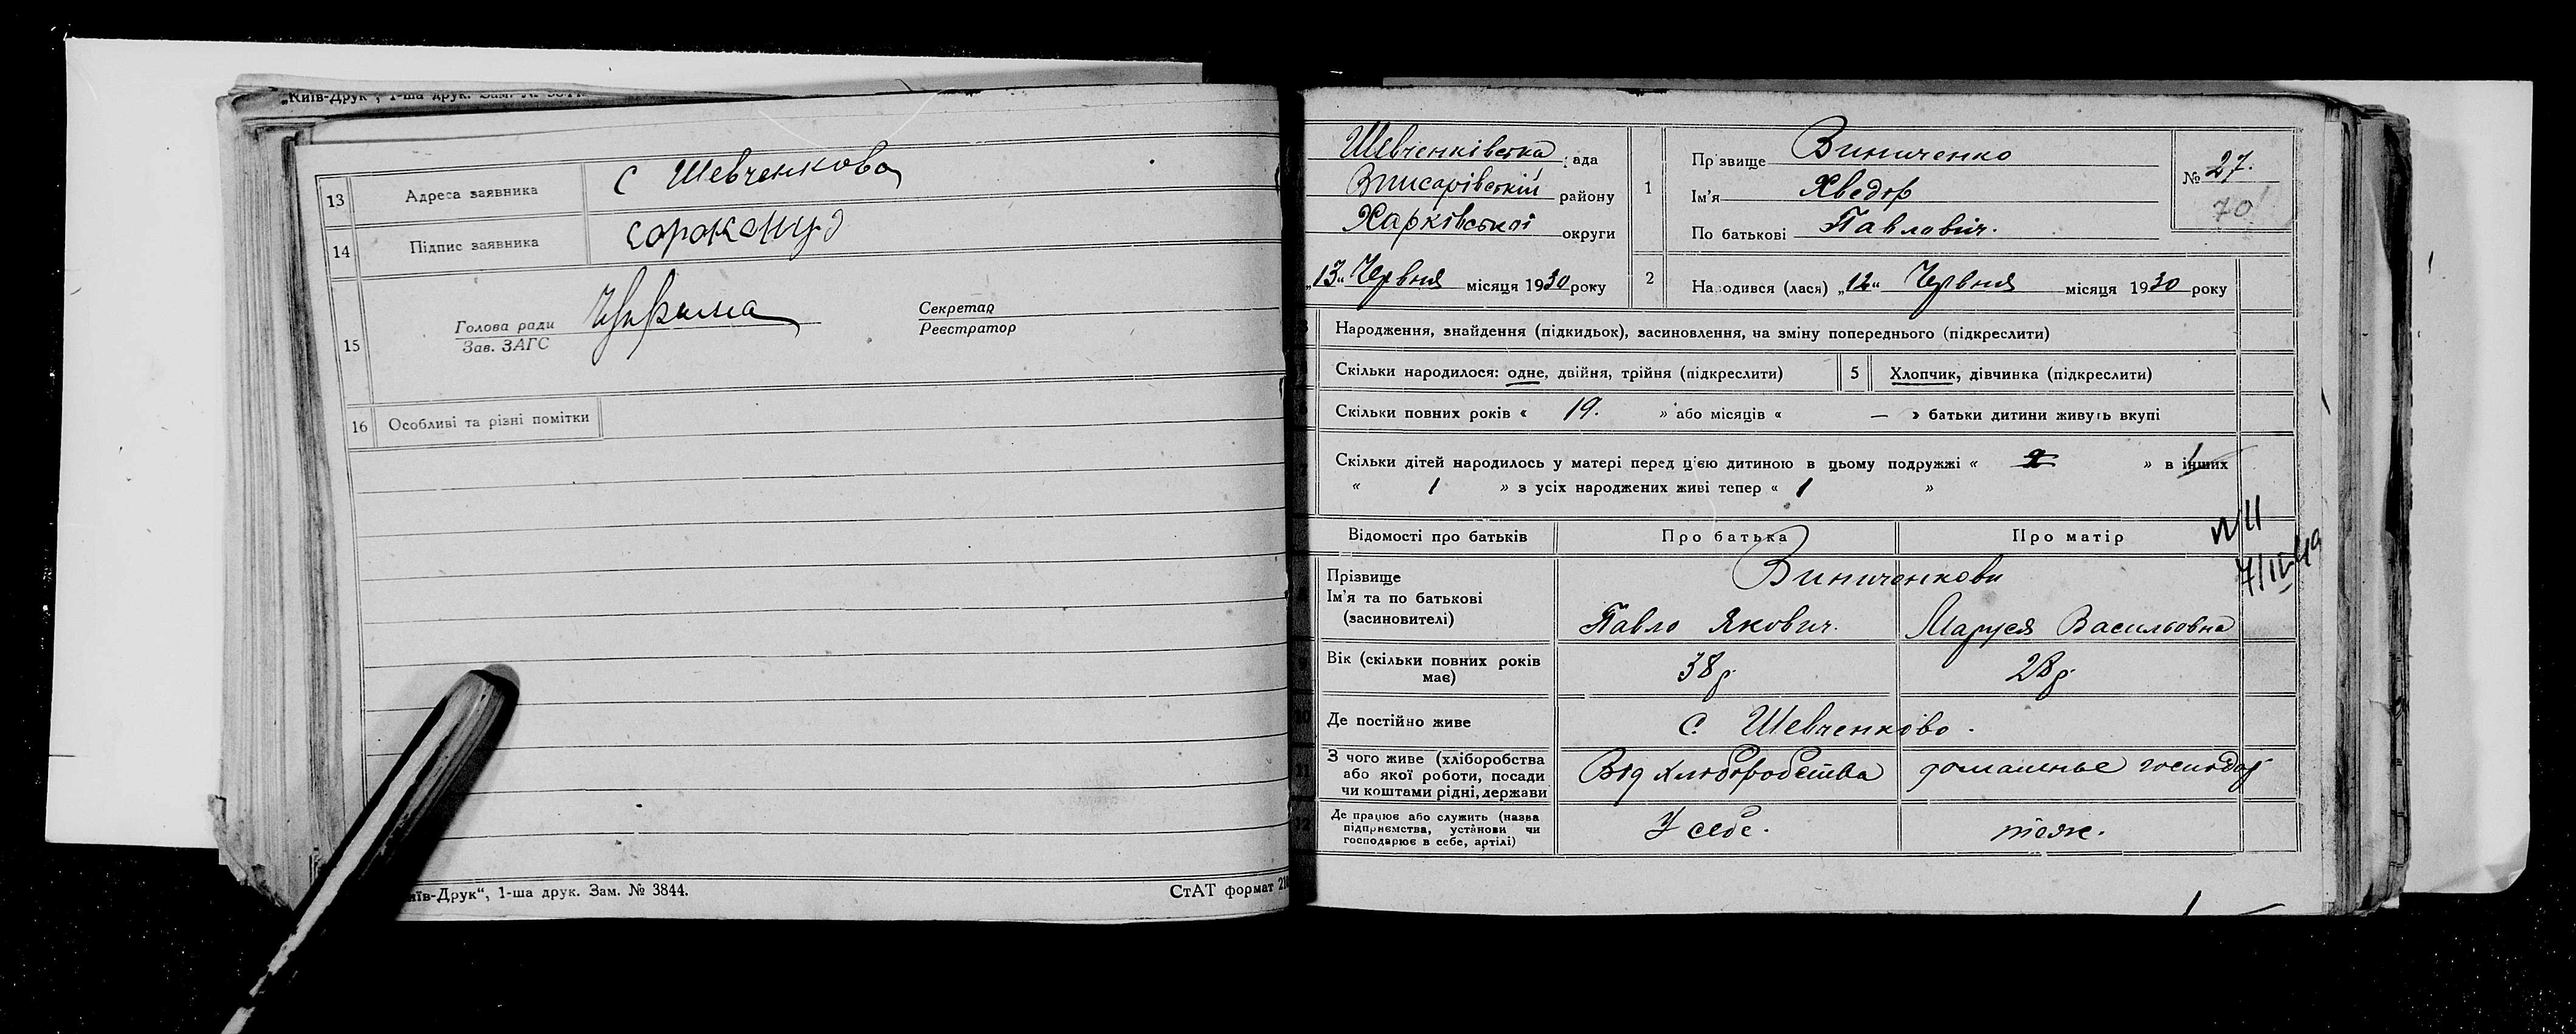 13 Адреса заявника С Шевченкова
14 Підпис заявника
15 Голова ради
Зав. ЗАГС
Секретар
Реєстратор
16 Особливі та різні помітки
"Київ-Друк", 1-ша друк. Зам. №
їв-Друк“, 1-ша друк. Зам. № 3844.
СтАТ формат 210
Шевченківська рада
району
Харківської округи
„13“ Червня місяця 1930 року
1 Прізвище Виниченко
Ім'я Хведор
По батькові Павлович.
№ 27.
70
2 Народився (лася) „12“ Червня місяця 1930 року
Народження, знайдення (підкидьок), засиновлення, на зміну попереднього (підкреслити)
Скільки народилося: одне, двійня, трійня (підкреслити) 5 Хлопчик, дівчинка (підкреслити)
Скільки повних років « 19. » або місяців « — » батьки дитини живуть вкупі
Скільки дітей народилось у матері перед цією дитиною в цьому подружжі « » в інших
« 1 » з усіх народжених живі тепер « 1 »
Відомості про батьків Про батька Про матір
Прізвище Виниченкови
Ім'я та по батькові
(засиновителі) Павло Якович. Маруся Васильовна
Вік (скільки повних років
має) 38 р. 28 р.
Де постійно живе С. Шевченково.
З чого живе (хліборобства
або якої роботи, посади
чи коштами рідні, держави Від хлиборобства домашнье господар
Де працює або служить (назва
підприємства, установи чи
господарює в себе, артілі) У себе. теж.